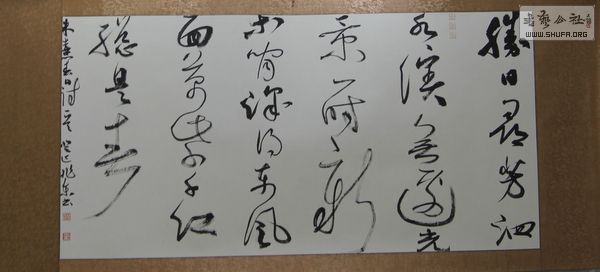 勝日尋芳泗
水濱無邊光
景一時新
等閒識得東風
面萬紫千紅
總是春
朱熹春日詩
書藝公社
WWW.SHUFA.ORG